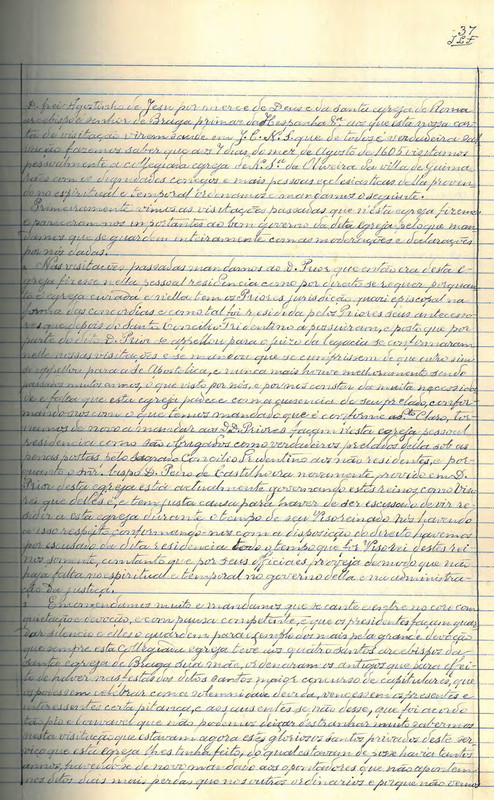 37
D. frei Agostinho de Jesu por merce de Deus e da santa egreja de Roma
arcebisbo senhor de Braga primaz da Hespanha &ra aos que esta nossa car-
ta de visitação virem saude em J. C. N. S. que de todos é verdadeira sal-
vação fazemos saber que aos 7 dias do mez de Agosto de 1605 visitamos
pessoalmente a collegiada egreja de N. Sra da Oliveira da villa de Guima-
rães com os dignidades conegos e mais pessoas ecclesiasticas della proven-
do no espiritual e temporal ordenamos e mandamos o seguinte.
Primeiramente vimos as visitações passadas que nesta egreja fizemos
e pareceram-nos importantes ao bom governo da dita egreja pelo que man-
damos que se guardem inteiramente com as moderações e declarações
por nós dadas.
Nas visitações passadas mandamos ao D. Prior que então era desta e-
greja fizesse nella pessoal residencia como por direito se requer porquan-
to é egreja curada e nella tem os Priores jurisdição quasi episcopal na
forma das concordias e como tal foi residida pelos Priores seus antecesso-
res que depois do Santo Concilio Tridentino a possuiram, e posto que por
parte do dito D. Prior se appellou para o juizo da Legacia se conformaram
nelle nossas visitações e se mandou que se cumprissem de que outro sim
se appellou para a Sé Apostolica, e nunca mais houve melhoramento sendo
passados muitos annos, o que visto por nós, e por nos constar da muita necessida-
de e falta que esta egreja padece com a ausencia do seu prelado, confor-
mando-nos com o que temos mandado que é conforme a dto Claro, tor-
namos de novo a mandar aos DD. Priores façam nesta egreja pessoal
residencia como são obrigados como verdadeiros prelados della sob as
penas postas pelo sagrado Concilio Tridentino aos não residentes, e por-
quanto o snr. bispo D. Pedro de Castilho ora novamente provido em D.
Prior desta egreja está actualmente governando estes reinos como Viso-
rei que delles é, e tem justa causa para haver de ser escusado de vir re-
sidir a esta egreja durante o tempo de seu Visoreinado nós havendo
a isso respeito conformando-nos com a disposição do direito havemos
por escusado da dita residencia todo o tempo que for Visorei destes rei-
nos somente, comtanto que por seus officiaes proveja de modo que não
haja falta no espiritual e temporal no governo della e na administra-
ção da justiça.
Encomendamos muito e mandamos que se cante e entre no coro com
quietação e devoção, e com pausa competente, e que os presidentes façam guar-
dar silencio e elles o guardem para exemplo dos mais pela grande devoção
que sempre esta Collegiada egreja teve aos quatro santos arcebispos da
Santa egreja de Braga sua mãe, ordenaram os antigos que para effei-
to de haver nas festas dos ditos santos maior concurso de capitulares, que
os podessem celebrar com a solemnidade devida, vencessem os presentes e
interessentes certa pitança, e aos ausentes se não desse, que foi acordo
tão pio e louvavel que não podemos deixar de estranhar muito sabermos
nesta visitação que estavam agora estes gloriosos santos, privados deste ser-
viço que esta egreja lhes tinha feito, do qual estavam de posse havia tantos
annos, havendo-se de novo mandado aos apontadores que não apontem
nos ditos dias mais perdas que nos outros ordinarios e porque não vemos